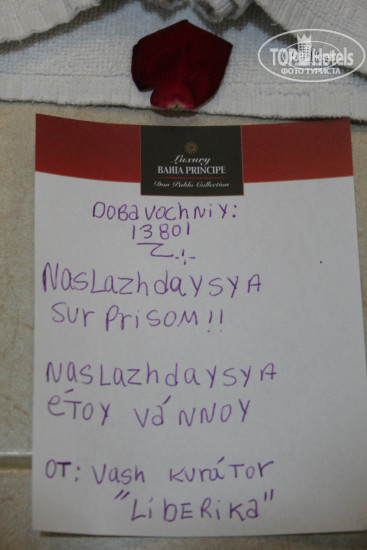 TOP Hotels
ФОТО ТУРИСТА
Luxury
BAHIA PRINCIPE
Don Pablo Collection
DOBAVOCHNIY:
13801
NASLAZHDAYSYA
SURPRISOM!!
NASLAZHDAYSYA
ÉTOY VÁNNOY
OT: VASH KURÁTOR
"LIBERIKA"